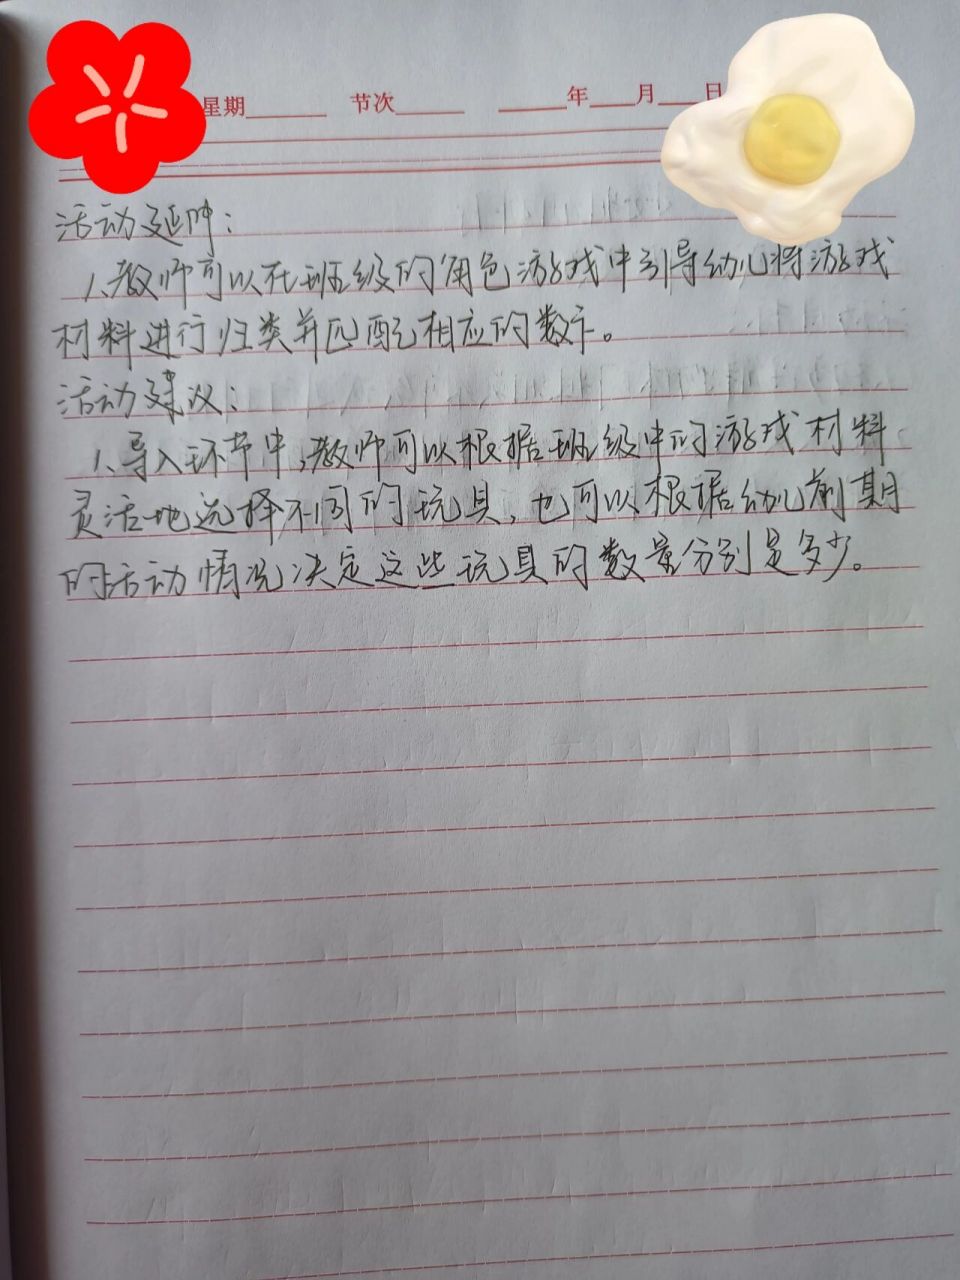 星期 节次 年 月 日
活动延伸:
1.教师可以在班级的角色游戏中引导幼儿将游戏
材料进行归类并匹配相应的数卡。
活动建议:
1.导入环节中,教师可以根据班级中的游戏材料
灵活地选择不同的玩具,也可以根据幼儿前期
的活动情况决定这些玩具的数量分别是多少。